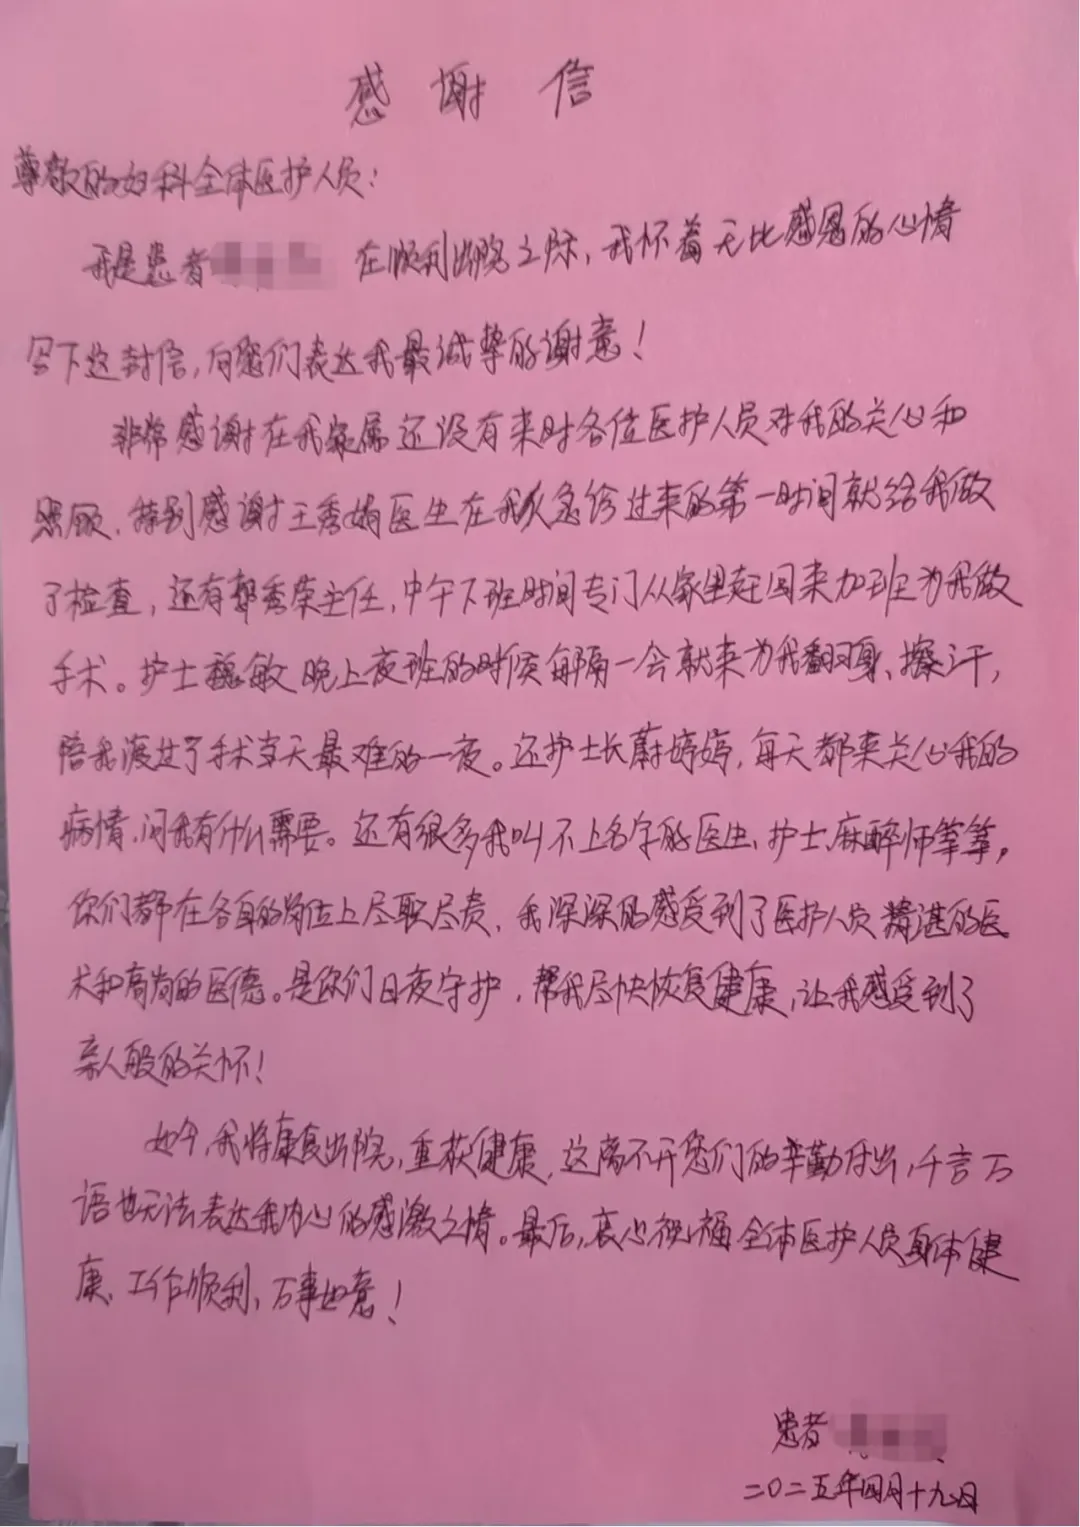 感谢信
尊敬的妇科全体医护人员：
我是患者 在顺利出院之际，我怀着无比感恩的心情
写下这封信，向您们表达我最诚挚的谢意！
非常感谢在我家属还没有来时各位医护人员对我的关心和
照顾，特别感谢王秀娟医生在我从急诊过来的第一时间就给我做
了检查，还有郭秀荣主任，中午下班时间专门从家里赶回来加班为我做
手术。护士魏敏晚上夜班的时候每隔一会就来为我翻身、擦汗，
陪我渡过了手术当天最难的一夜。还护士长蔚婷婷，每天都来关心我的
病情，问我有什么需要。还有很多我叫不上名字的医生、护士、麻醉师等等，
你们都在各自的岗位上尽职尽责，我深深的感受到了医护人员精湛的医
术和高尚的医德。是你们日夜守护，帮我尽快恢复健康，让我感受到了
亲人般的关怀！
如今，我将康复出院，重获健康，这离不开您们的辛勤付出，千言万
语也无法表达我内心的感激之情。最后，衷心祝福全体医护人员身体健
康、工作顺利，万事如意！
患者
二〇二五年四月十九日